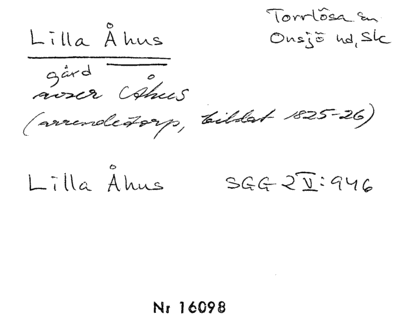 Lilla Åhus
Torrlösa sn
Onsjö hd, Sk
gård
avser Åhus
(arrendetorp, bildat 1825-26)
Lilla Åhus SGG 2 V: 946
Nr 16098